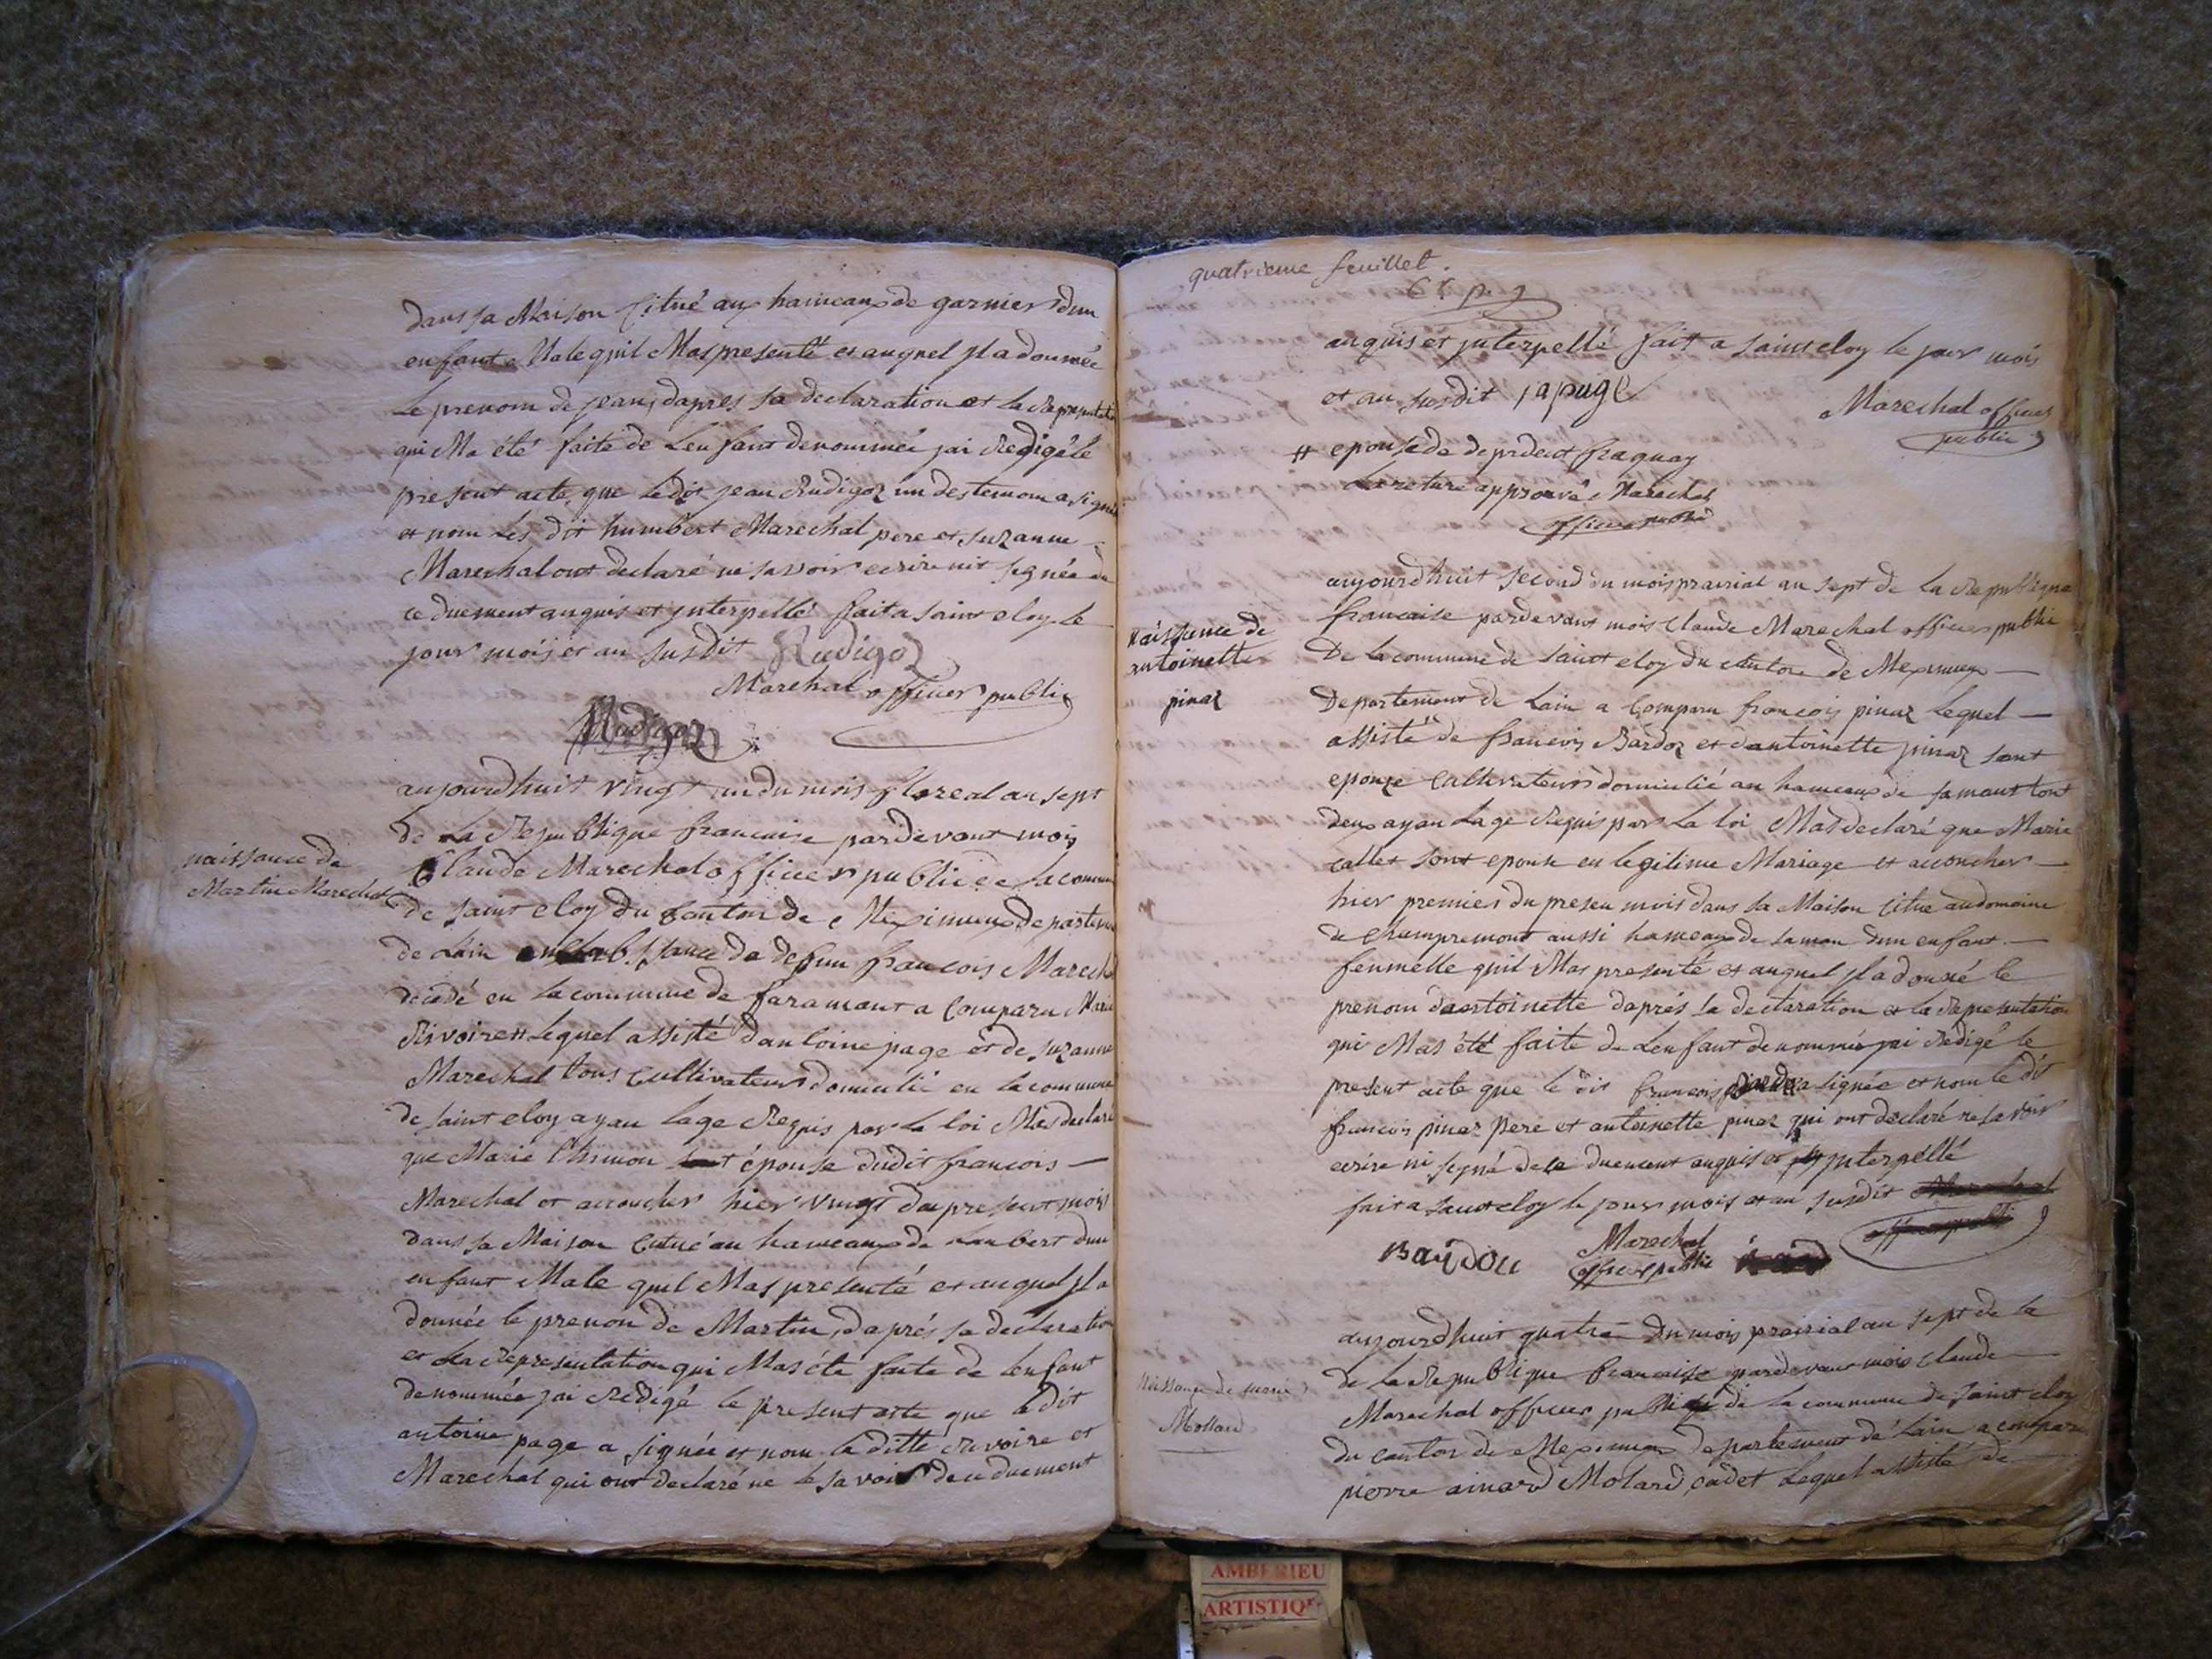 dans sa Maison Citué aux hameaux de garnier dun
enfant Male quil Mas presenté et auquel jl a donnée
Le prenom de jean, dapres sa declaration et la
qui Ma été faite de Lenfant denommée jai Redigé le
present acte, que Ledit jean Rudigoz un des temoin a signé
et nom Les dit humbert Marechal pere et suzanne
Marechal ont declaré ne savoir ecrire nit segnée de
ce duement anquis et jnterpellé fait a saint eloy le
jour mois et an susdit Rudigoz
Marechal officier public
Rudigoz
aujourdhuit vingt un du mois floreal an sept
de La Republique francaise pardevant mois
naissance de
Martin Marechal
Claude Marechal officier public de la commune
de saint eloy du Canton de Meximieux departem
de Lain de defun francois Marechal
decedé en la commune de faramant a Comparu Marie
Rivoire # Lequel assisté dantoine page et de suzanne
Marechal tous Cultivateurs domicilié en la commune
de saint eloy ayan lage Requis par la loi Mas declaré
que Marie épouse dudit francois
Marechal et accoucher hier vingt du present mois
dans sa Maison Citué au hameaux de dun
enfant Male quil Mas presenté et auquel jl a
donnée le prenon de Martin, daprés sa declaration
et La Representation qui Mas été faite de Lenfant
denommée jai Redigé le present acte que ledit
antoine page a signée et nom la ditte Rivoire et
Marechal qui ont declaré ne le savoir de ce duement
quatrieme feuillet.
anquis et jnterpellé fait a saint eloy le jour mois
et an susdit
Marechal officier
public
# epouse de
La reture approuvé Marechal
officier public
aujourdhuit second du mois prairial an sept de La Republique
francaise pardevant mois Claude Marechal officier public
Naissance de
antoinette
pinaz
De la commune de saint eloy du Canton de Meximieux
Departement de Lain a Comparu francois pinaz Lequel
assisté de francois Bardoz et dantoinette pinaz sont
epouze Cultivateurs domicilié au hameaux de samant tout
deux ayan Lage Requis par La loi Mas declaré que Marie
callet sont epouse en legitime Mariage et accoucher
hier premier du presen mois dans sa Maison Citue au domaine
de champremont aussi hameaux de saman dun enfant
femmelle quil Mas presenté et auquel jl a donné le
prenom dantoinette daprés sa declaration et la Representation
qui Mas été faite de Lenfant denommés jai Redigé le
present acte que le dit francois a signée et nom le dit
francois pinaz Pere et antoinette pinaz qui ont declaré ne savoir
ecrire ni segné de ce duement anquis et jnterpéllé
fait a saint eloy le jour mois et an susdit
Marechal
officier public
aujourdhuit quatre du mois prairial an sept de la
de La Republique francaise pardevant mois Claude
Naissance de marie
Mollard
Marechal officier public de la commune de saint eloy
du canton de Meximieux departement de Lain a comparu
pierre ainard Molard cadet Lequel assisté de
AMBERIEU
ARTISTIQ